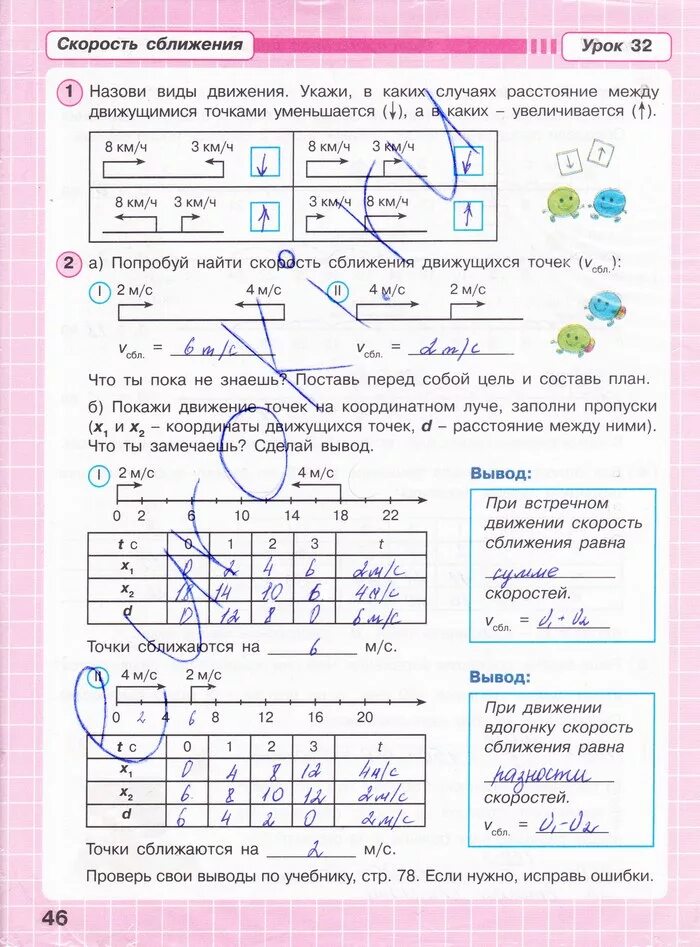 Скорость сближения Урок 32
1 Назови виды движения. Укажи, в каких случаях расстояние между
движущимися точками уменьшается (↓), а в каких – увеличивается (↑).
8 км/ч 3 км/ч ↓ 8 км/ч 3 км/ч ↓
8 км/ч 3 км/ч ↑ 3 км/ч 8 км/ч ↑
2 а) Попробуй найти скорость сближения движущихся точек (vсбл.):
I 2 м/с 4 м/с II 4 м/с 2 м/с
vсбл. = 6 м/с vсбл. = 2 м/с
Что ты пока не знаешь? Поставь перед собой цель и составь план.
б) Покажи движение точек на координатном луче, заполни пропуски
(x1 и x2 – координаты движущихся точек, d – расстояние между ними).
Что ты замечаешь? Сделай вывод.
I 2 м/с 4 м/с
0 2 6 10 12 14 18 22
t с 0 1 2 3 t
x1 0 2 4 6 2м/с
x2 18 14 10 6 4м/с
d 0 12 8 0 6м/с
Точки сближаются на 6 м/с.
Вывод:
При встречном
движении скорость
сближения равна
сумме
скоростей.
vсбл. = v1 + v2
II 4 м/с 2 м/с
0 2 4 6 8 12 16 20
t с 0 1 2 3 t
x1 0 4 8 12 4м/с
x2 6 8 10 12 2м/с
d 6 4 2 0 2м/с
Точки сближаются на 2 м/с.
Вывод:
При движении
вдогонку скорость
сближения равна
разности
скоростей.
vсбл. = v1-v2
Проверь свои выводы по учебнику, стр. 78. Если нужно, исправь ошибки.
46